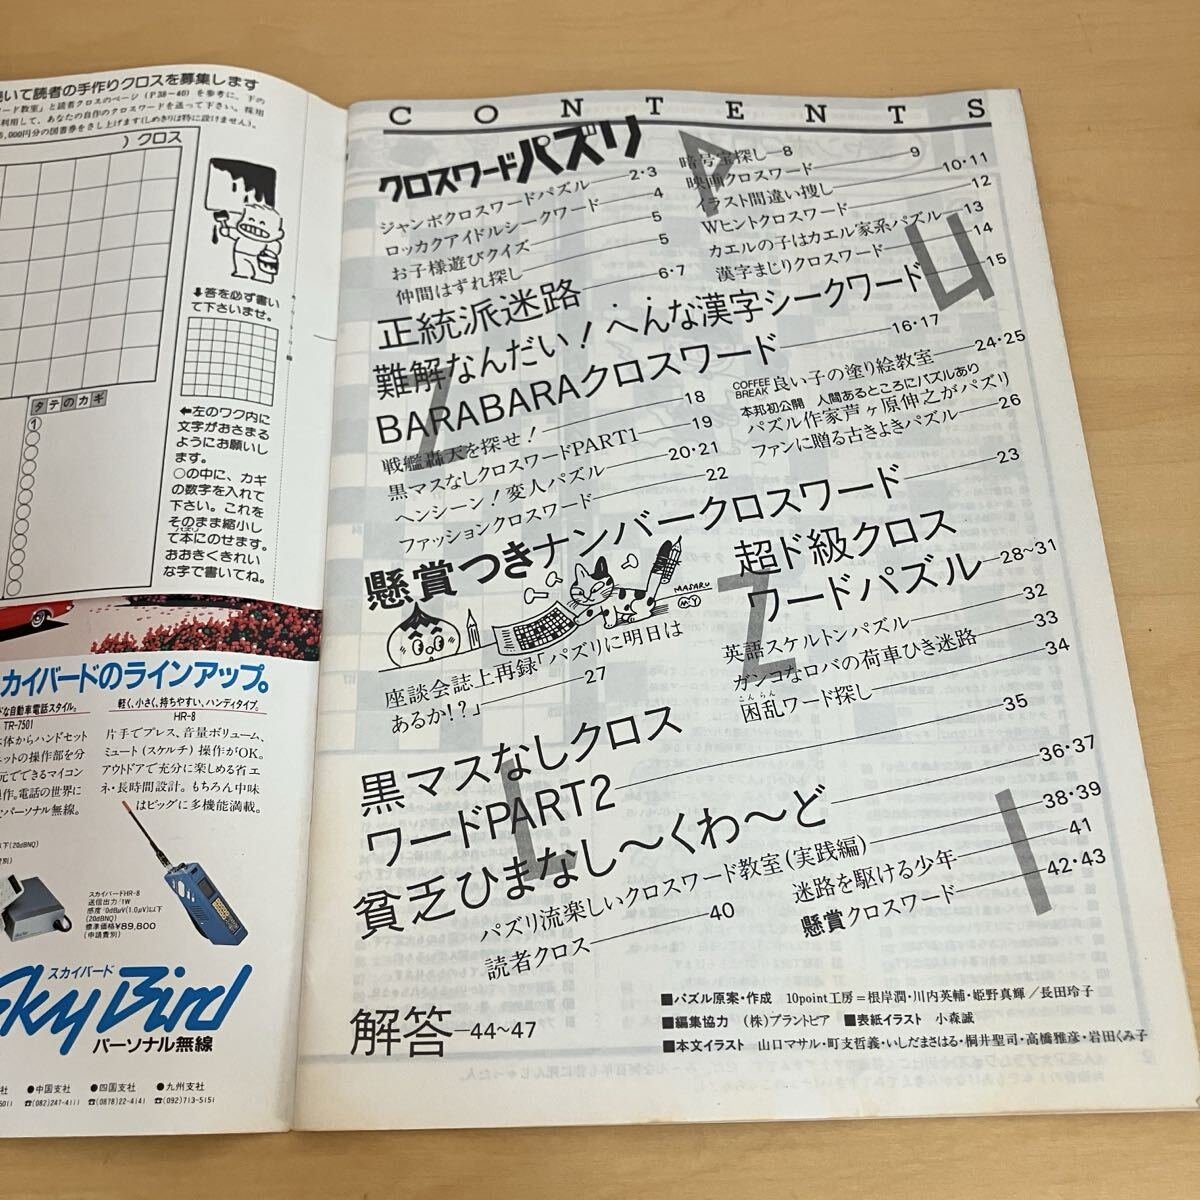 いて読者の手作りクロスを募集します
ード教室」と読者クロスのページ(P38〜40)を参考に、下の
利用して、あなたの自作のクロスワードを送って下さい。採用
5,000円分の図書券をさし上げます(しめきりは特に設けません)。
)クロス
↓答を必ず書い
て下さいませ。
タテのカギ
①
←左のワク内に
文字がおさまる
ようにお願いし
ます。
○の中に、カギ
の数字を入れて
下さい。これを
そのまま縮小し
て本にのせます。
おおきくきれい
な字で書いてね。
カイバードのラインアップ。
な自動車電話スタイル。
TR-7501
体からハンドセット
ニットの操作部を分
元でできるマイコン
操作。電話の世界に
パーソナル無線。
軽く、小さく、持ちやすい、ハンディタイプ。
HR-8
片手でプレス、音量ボリューム、
ミュート(スケルチ)操作がOK。
アウトドアで充分に楽しめる省エ
ネ・長時間設計。もちろん中味
はビッグに多機能満載。
以下(20dBNQ)
スカイバードHR-8
送信出力/1W
感度/0dBμV(1.0μV)以下
(20dBNQ)
標準価格¥89,800
(申請費別)
スカイバード
Sky Bird
パーソナル無線
●中国支社
☎(082)247-4111
●四国支社
☎(0878)22-4141
●九州支社
☎(092)713-5151
CONTENTS
クロスワードパズリ
ジャンボクロスワードパズル 2・3
ロッカクアイドルシークワード 4
お子様遊びクイズ 5
仲間はずれ探し 5
正統派迷路 6・7
暗号宝探し 8
映画クロスワード 9
イラスト間違い捜し 10・11
Wヒントクロスワード 12
カエルの子はカエル家系パズル 13
漢字まじりクロスワード 14
難解なんだい!へんな漢字シークワード 15
BARABARAクロスワード 16・17
戦艦轟天を探せ! 18
黒マスなしクロスワードPART1 19
ヘンシーン!変人パズル 20・21
ファッションクロスワード 22
COFFEE BREAK 良い子の塗り絵教室 24・25
本邦初公開 人間あるところにパズルあり
パズル作家芦ヶ原伸之がパズリ
ファンに贈る古きよきパズル 26
懸賞つきナンバークロスワード 23
MASARU
MY
座談会誌上再録「パズリに明日は
あるか!?」 27
超ド級クロス
ワードパズル 28〜31
英語スケルトンパズル 32
ガンコなロバの荷車ひき迷路 33
困乱ワード探し 34
こんらん
黒マスなしクロス
ワードPART2 35
貧乏ひまなし〜くわ〜ど 36・37
パズリ流楽しいクロスワード教室(実践編) 38・39
読者クロス 40
迷路を駆ける少年 41
懸賞クロスワード 42・43
解答 44〜47
PUZZLI
■パズル原案・作成 10point工房=根岸潤・川内英輔・姫野真輝/長田玲子
■編集協力 (株)プラントピア ■表紙イラスト 小森誠
■本文イラスト 山口マサル・町支哲義・いしだまさはる・桐井聖司・高橋雅彦・岩田くみ子